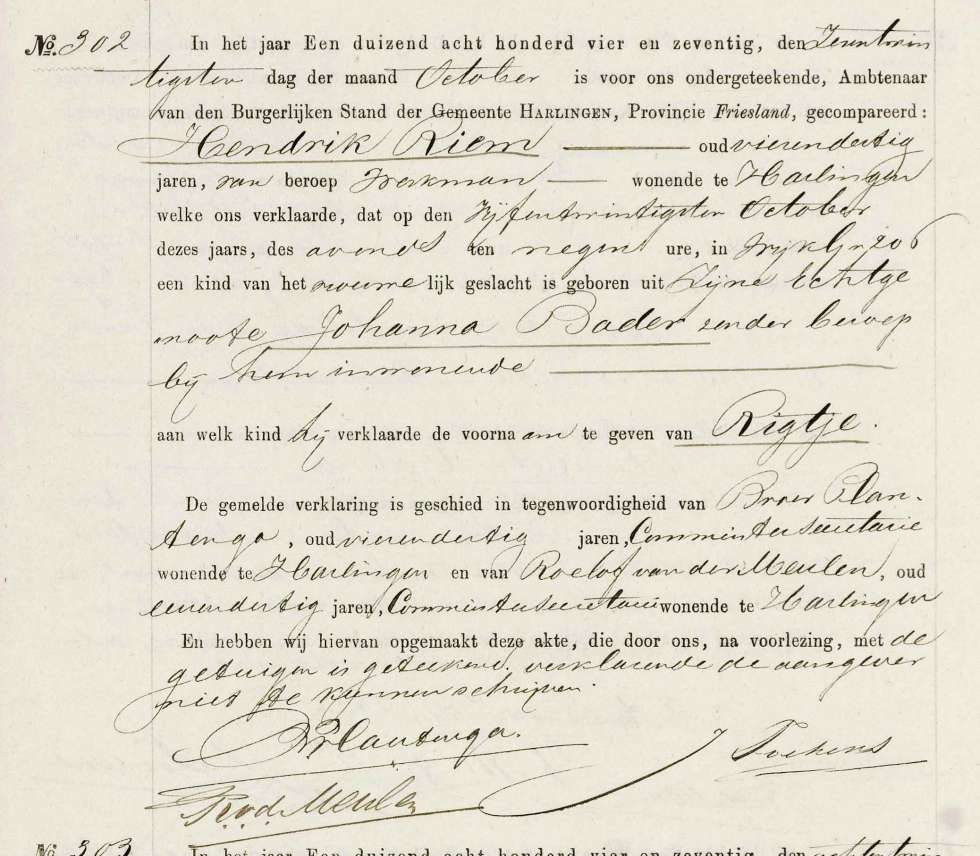 No. 302 In het jaar Een duizend acht honderd vier en zeventig, den Zeventwin
tigsten dag der maand October is voor ons ondergeteekende, Ambtenaar
van den Burgerlijken Stand der Gemeente HARLINGEN, Provincie Friesland, gecompareerd:
Hendrik Riem oud vierendertig
jaren, van beroep Werkman wonende te Harlingen
welke ons verklaarde, dat op den Vijfentwintigsten October
dezes jaars, des avonds ten negen ure, in Wijk G n 206
een kind van het vrouwelijk geslacht is geboren uit Zijne Echtge
noote Johanna Bader zonder beroep
bij hem inwonende
aan welk kind hij verklaarde de voornaam te geven van Rigtje.
De gemelde verklaring is geschied in tegenwoordigheid van Broer Plan-
tenga, oud vierendertig jaren, Commies ter secretarie
wonende te Harlingen en van Roelof van der Meulen, oud
eenendertig jaren, Commies ter secretarie wonende te Harlingen
En hebben wij hiervan opgemaakt deze akte, die door ons, na voorlezing, met de
getuigen is geteekend. verklarende de aangever
niet te kunnen schrijven.
B Plantenga.
J Fockens
R. v. d. Meulen
No. 303 In het jaar Een duizend acht honderd vier en zeventig, den